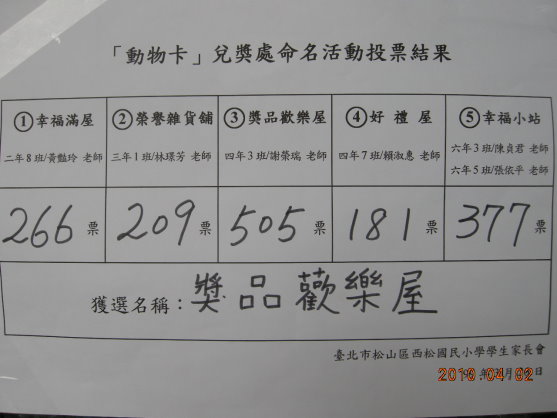 「動物卡」兌獎處命名活動投票結果
①幸福滿屋 ②榮譽雜貨舖 ③獎品歡樂屋 ④好禮屋 ⑤幸福小站
二年8班/黃豔玲 老師 三年1班/林璟芳 老師 四年3班/謝榮瑞 老師 四年7班/賴淑惠 老師 六年3班/陳貞君 老師
六年5班/張依平 老師
266票 209票 505票 181票 377票
獲選名稱：獎品歡樂屋
臺北市松山區西松國民小學學生家長會
年 月 日
2010.04.02